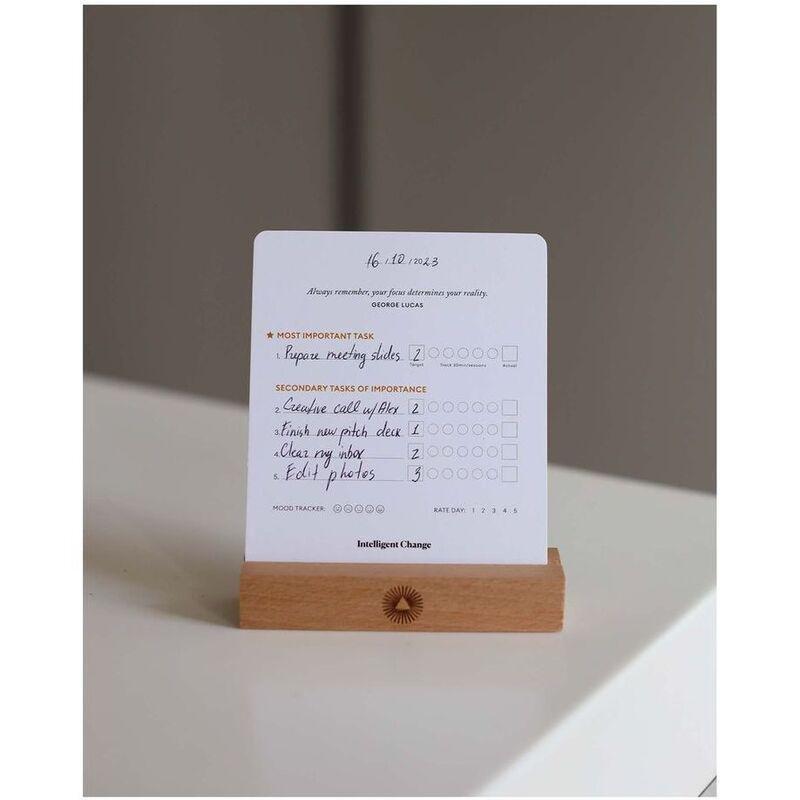 16 / 10 / 2023
Always remember, your focus determines your reality.
GEORGE LUCAS
★ MOST IMPORTANT TASK
1. Prepare meeting slides 2
Target Track 30min/sessions Actual
SECONDARY TASKS OF IMPORTANCE
2. Creative call w/ Alex 2
3. Finish new pitch deck 1
4. Clear my inbox 2
5. Edit photos 3
MOOD TRACKER: RATE DAY: 1 2 3 4 5
Intelligent Change